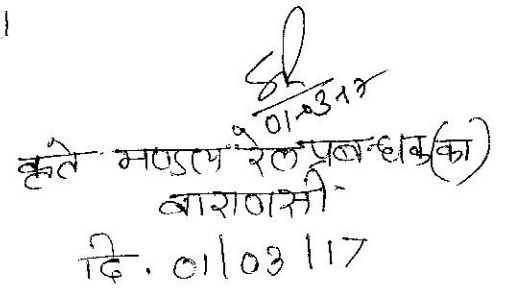 01.03.17
कृते मण्डल रेल प्रबन्धक(का)
वाराणसी
दि. 01/03/17